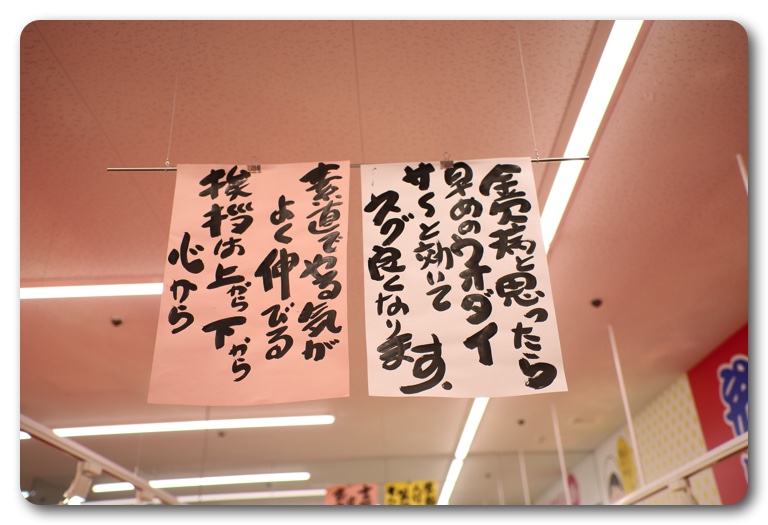 金欠病と思ったら
早めのウオダイ
サッと効いて
スグ良くなります。
素直でやる気が
よく伸びる
挨拶は上から下から
心から